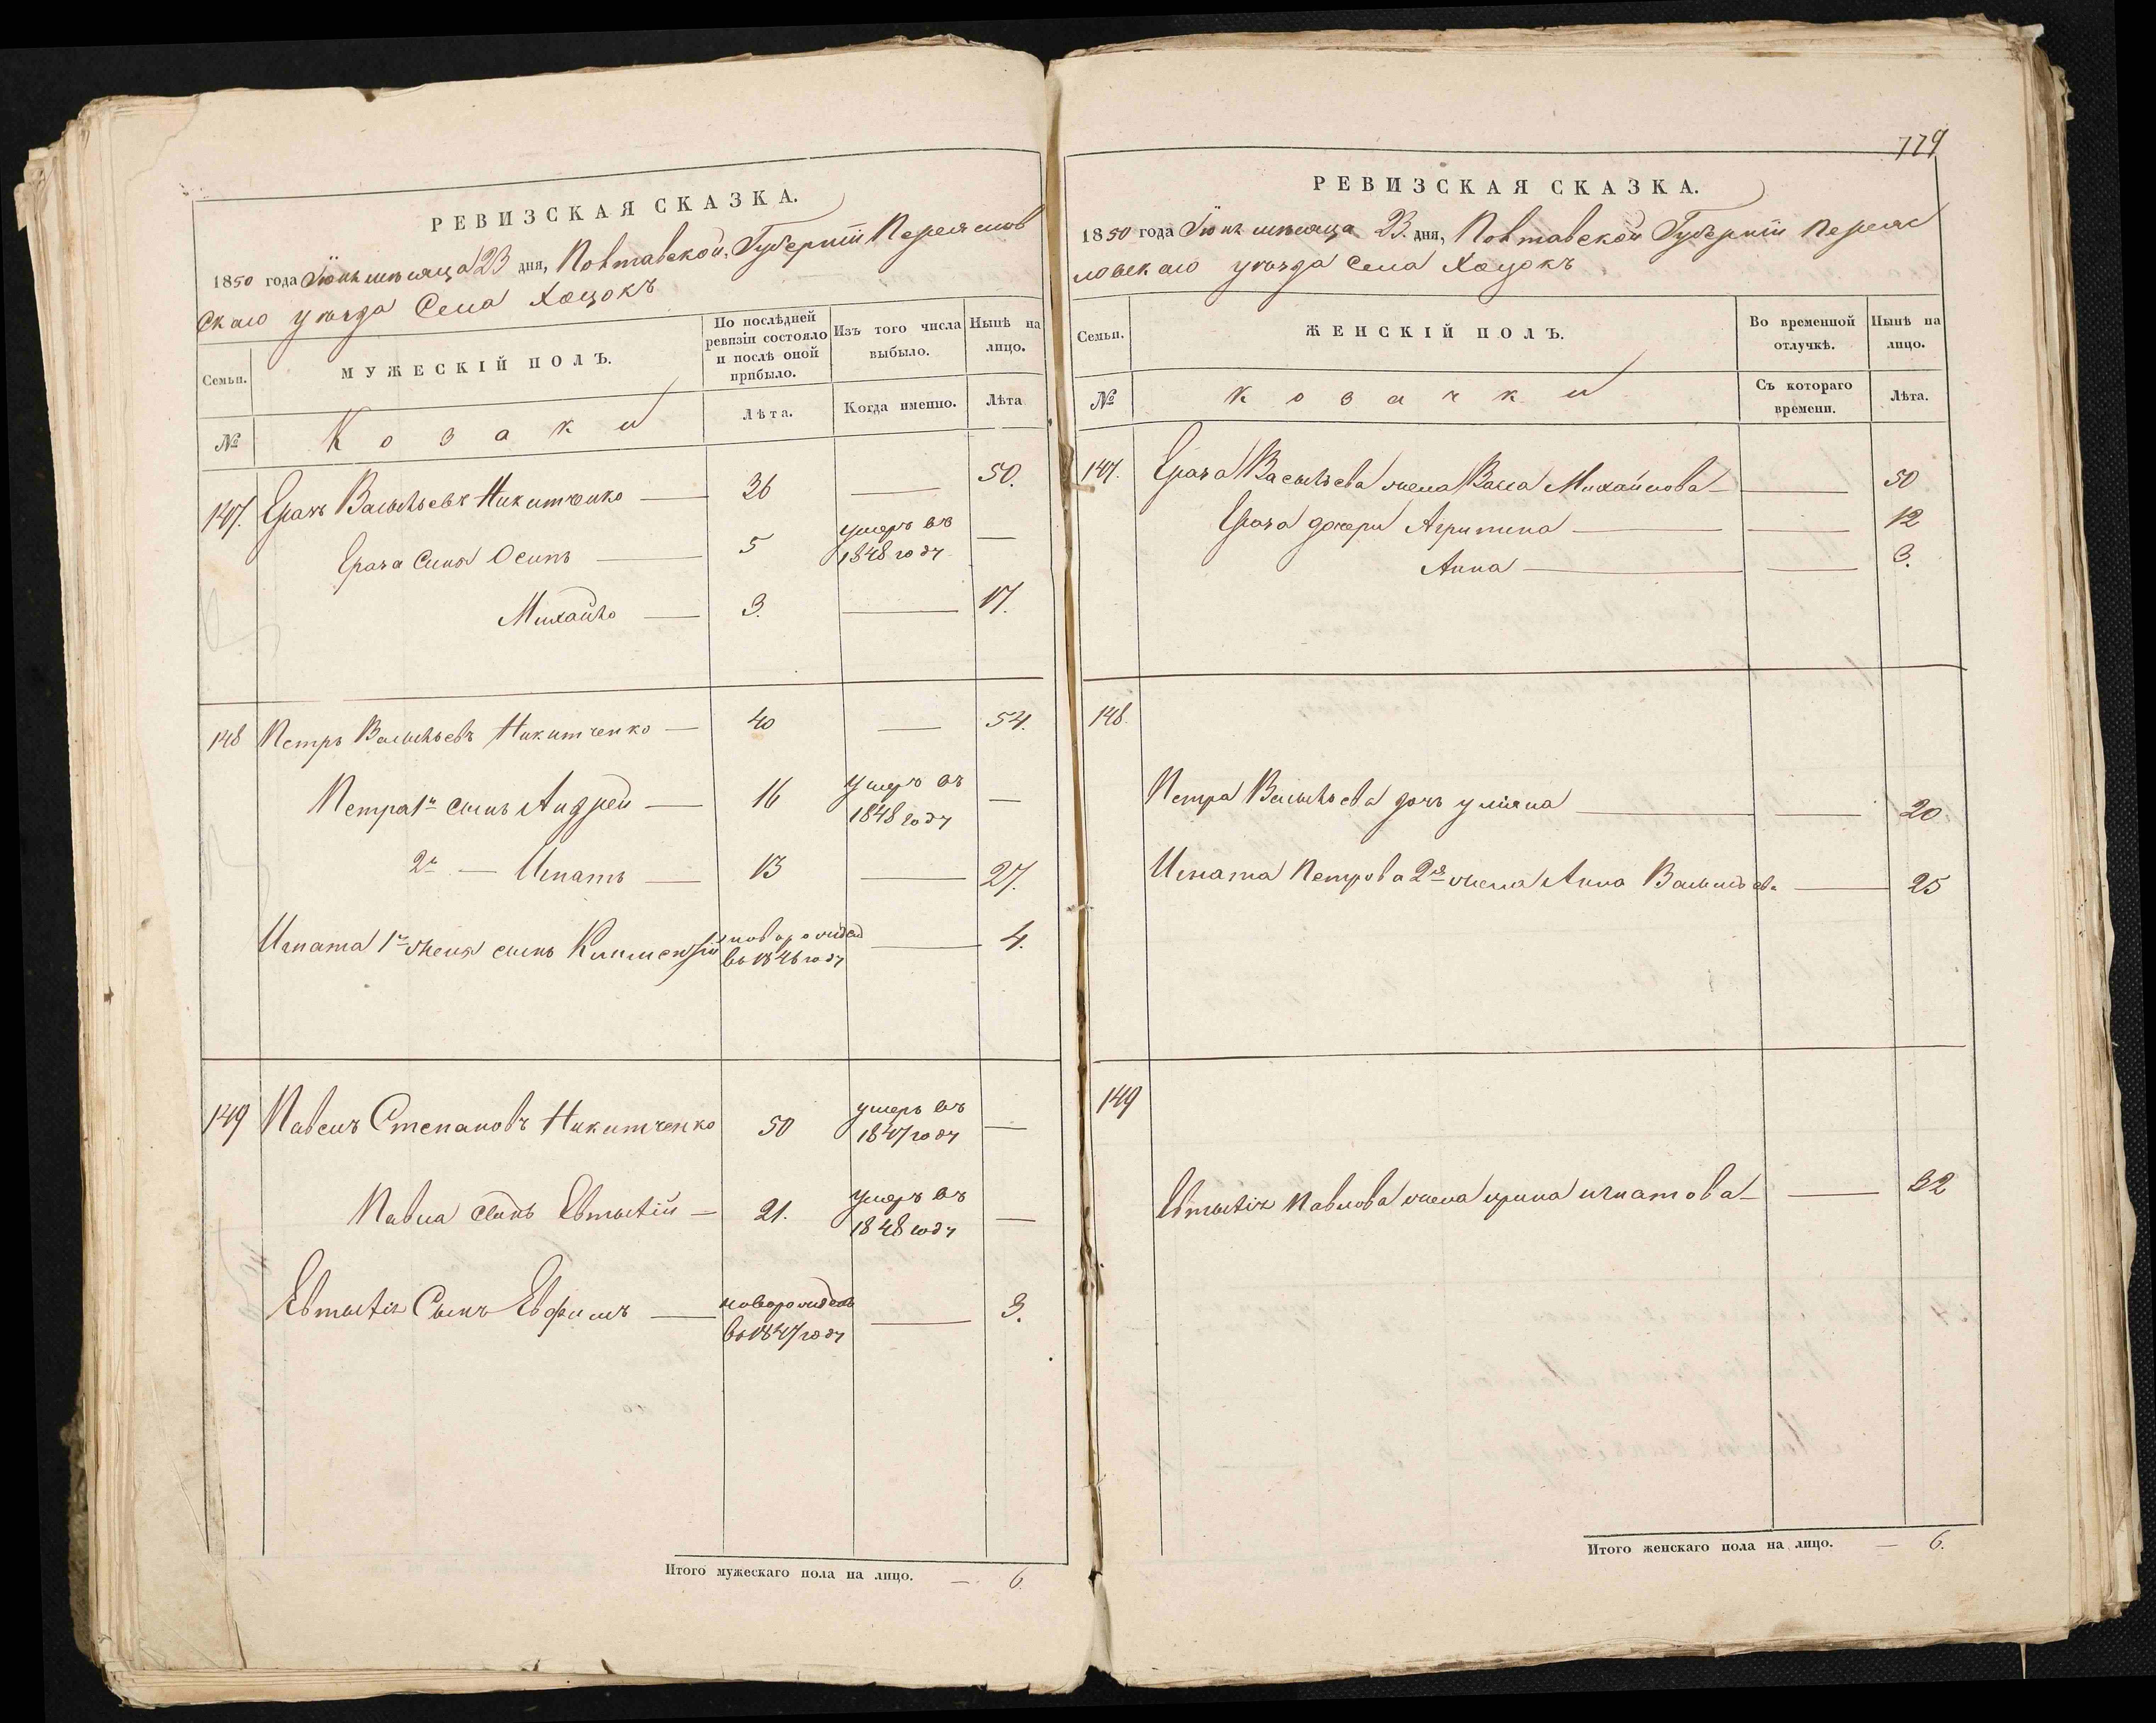 РЕВИЗСКАЯ СКАЗКА.
1850 года Іюнь мѣсяца 23 дня, Полтавской Губерніи Переяслов
скаго уѣзда Села Хоцокъ
Семьи.
МУЖЕСКІЙ ПОЛЪ.
По послѣдней ревизіи состояло и послѣ оной прибыло.
Изъ того числа выбыло.
Нынѣ на лицо.
№
Козаки
Лѣта.
Когда именно.
Лѣта
147. Васильевъ Никитченко — 36 — 50.
сыня Осипъ — 5 умеръ въ 1848 году —
Михайло — 3. — 17.
148 Петръ Васильевъ Никитченко — 40 — 54.
Петра 1й сынъ Андрей — 16 умеръ въ 1848 году —
2й — Игнатъ — 13 — 27.
Игната 1й жени сынъ новорожден во 1846 году — 4.
149 Павелъ Степановъ Никитченко 50 умеръ въ 1847 году —
Павла сынъ Евтихій — 21. умеръ въ 1848 году —
Евтихія Сынъ Евфимъ — новорожден во 1847 году — 3.
Итого мужескаго пола на лицо. — 6.
779
РЕВИЗСКАЯ СКАЗКА.
1850 года Іюнь мѣсяца 23. дня, Полтавской Губерніи Переяс
ловскаго уѣзда Села Хоцокъ
Семьи.
ЖЕНСКІЙ ПОЛЪ.
Во временной отлучкѣ.
Нынѣ на лицо.
№
козачки
Съ котораго времени.
Лѣта.
147. Васильева жена Васса Михайлова — — 50
дочери Агрипина — — 12
Анна — — 3.
148.
Петра Васильева дочь уліяна — — 20
Игната Петрова 2я жена Анна Васильева — 25
149
Евтихія Павлова жена ирина игнатова — — 32
Итого женскаго пола на лицо. — 6.